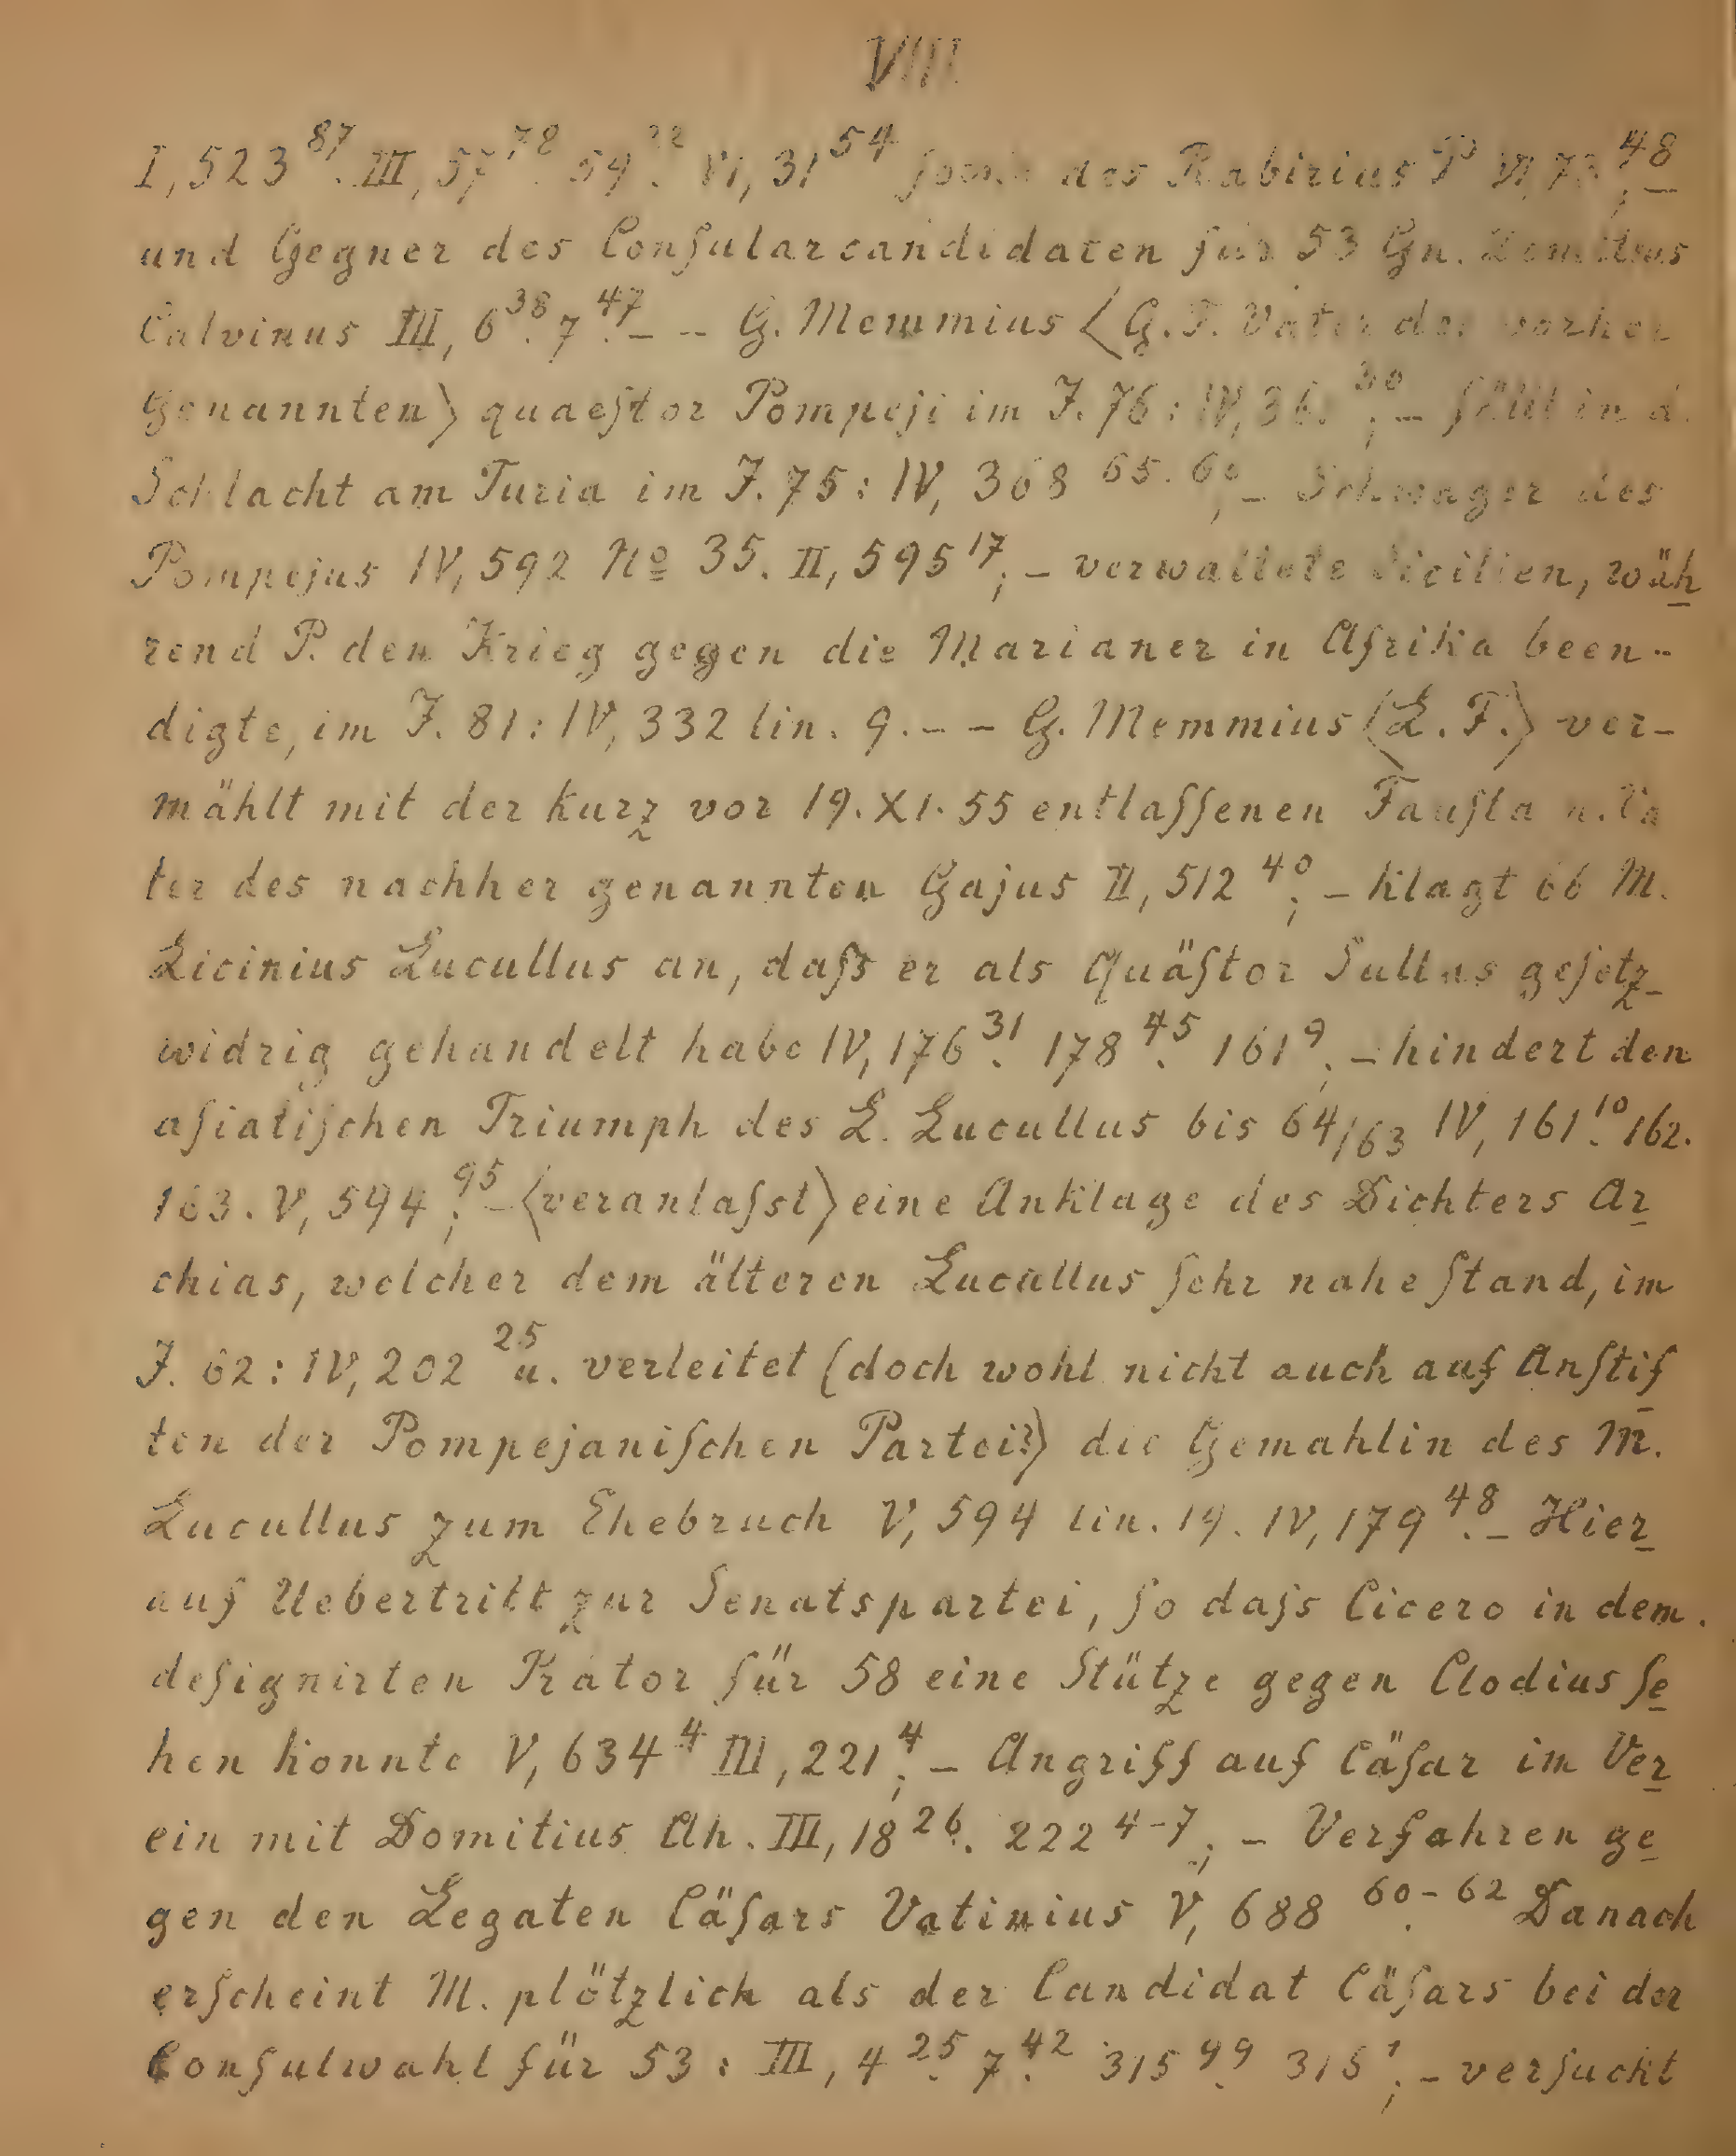 VIII
I, 523⁸⁷. III, 57⁷⁸. 59²². VI, 31⁵⁴ sowie des Rabirius P VI, 73⁴⁸; –
und Gegner des Conſularcandidaten für 53 Gn. Domitius
Calvinus III, 6³⁸. 7⁴⁷. – – G. Memmius ⟨G. F. Vater des vorher
Genannten⟩ quaeſtor Pompeji im J. 76: IV, 36.³⁰; – fällt in d.
Schlacht am Turia im J. 75: IV, 368 ⁶⁵·⁶⁶; – Schwager des
Pompejus IV, 592 Nº 35. II, 595¹⁷; – verwaltete Sicilien, wäh
rend P. den Krieg gegen die Marianer in Afrika been-
digte, im J. 81: IV, 332 lin. 9. – – G. Memmius ⟨L. F.⟩ ver-
mählt mit der kurz vor 19. XI. 55 entlaſſenen Fauſta u. Va
ter des nachher genannten Gajus II, 512⁴⁰; – klagt 66 M.
Licinius Lucullus an, daſs er als Quäſtor Sullas geſetz-
widrig gehandelt habe IV, 176³¹. 178⁴⁵. 161⁹; – hindert den
aſiatiſchen Triumph des L. Lucullus bis 64/63 IV, 161¹⁰. 162.
163. V, 594⁹⁵; – ⟨veranlaſst⟩ eine Anklage des Dichters Ar
chias, welcher dem älteren Lucullus ſehr nahe ſtand, im
J. 62: IV, 202 ²⁵ u. verleitet (doch wohl nicht auch auf Anſtif
ten der Pompejaniſchen Partei?) die Gemahlin des M.
Lucullus zum Ehebruch V, 594 lin. 19. IV, 179⁴⁸. – Hier
auf Uebertritt zur Senatspartei, ſo daſs Cicero in dem
deſignirten Prätor für 58 eine Stütze gegen Clodius ſe
hen konnte V, 634⁴ III, 221⁴; – Angriff auf Cäſar im Ver
ein mit Domitius Ah. III, 18²⁶. 222⁴⁻⁷; – Verfahren ge
gen den Legaten Cäſars Vatinius V, 688 ⁶⁰⁻⁶². Danach
erſcheint M. plötzlich als der Candidat Cäſars bei der
Conſulwahl für 53: III, 4²⁵. 7⁴². 315⁴⁹. 316¹; – verſucht